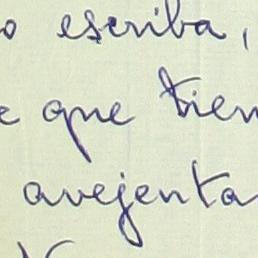 o escriba,
e que tien
avejenta